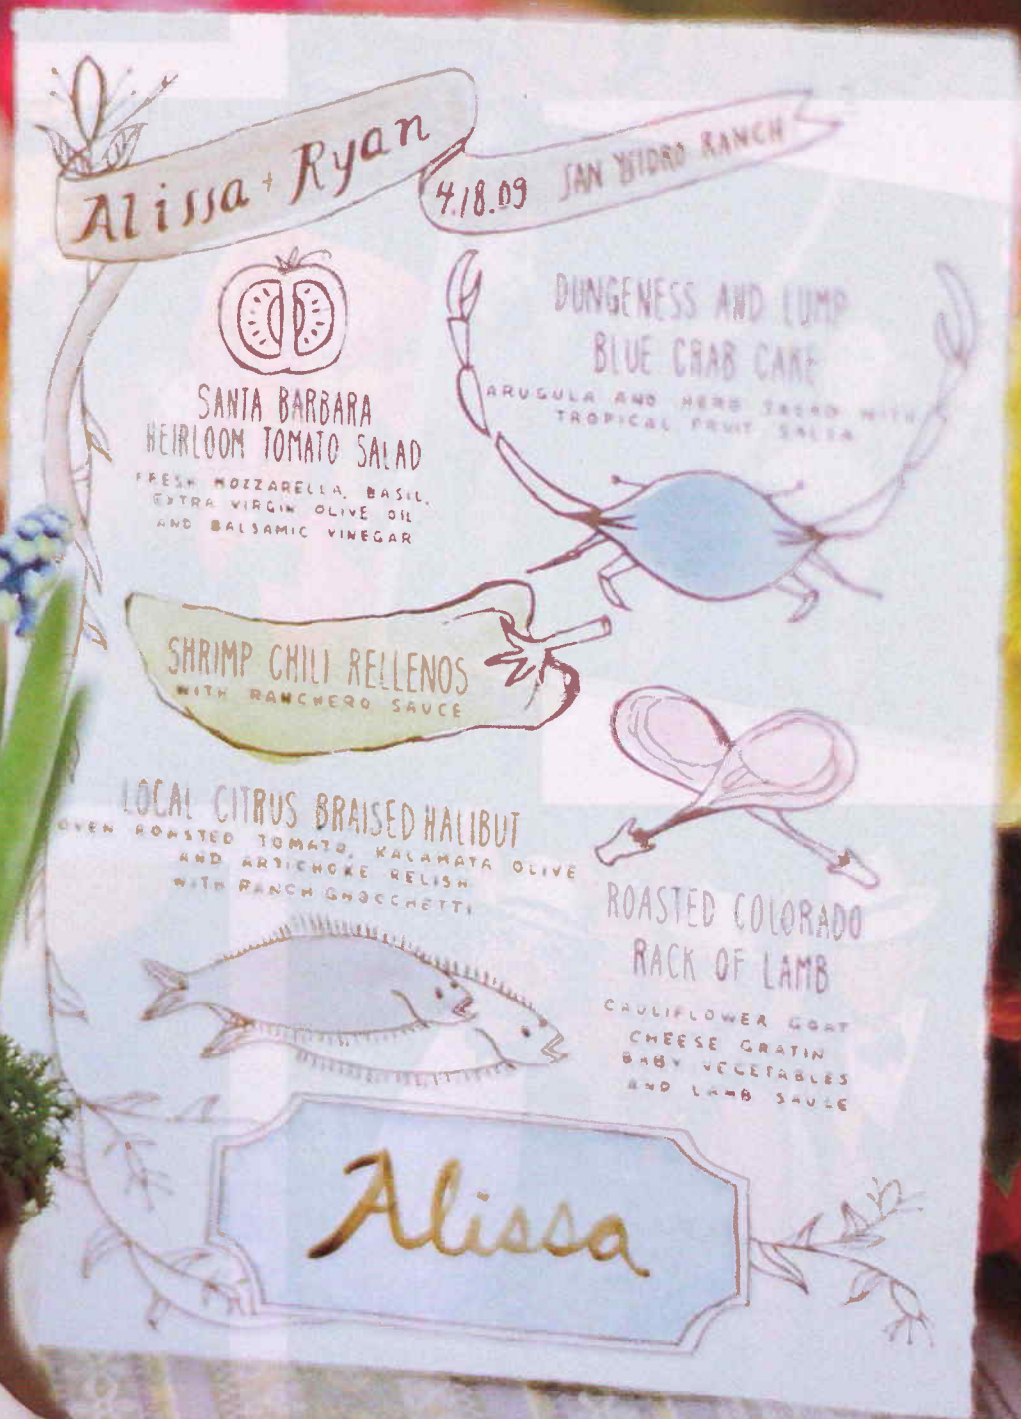 Alissa + Ryan
4.18.09 SAN YSIDRO RANCH
SANTA BARBARA
HEIRLOOM TOMATO SALAD
FRESH MOZZARELLA, BASIL,
EXTRA VIRGIN OLIVE OIL
AND BALSAMIC VINEGAR
DUNGENESS AND LUMP
BLUE CRAB CAKE
ARUGULA AND HERB SALAD WITH
TROPICAL FRUIT SALSA
SHRIMP CHILI RELLENOS
WITH RANCHERO SAUCE
LOCAL CITRUS BRAISED HALIBUT
OVEN ROASTED TOMATO, KALAMATA OLIVE
AND ARTICHOKE RELISH
WITH RANCH GNOCCHETTI
ROASTED COLORADO
RACK OF LAMB
CAULIFLOWER GOAT
CHEESE GRATIN
BABY VEGETABLES
AND LAMB SAUCE
Alissa